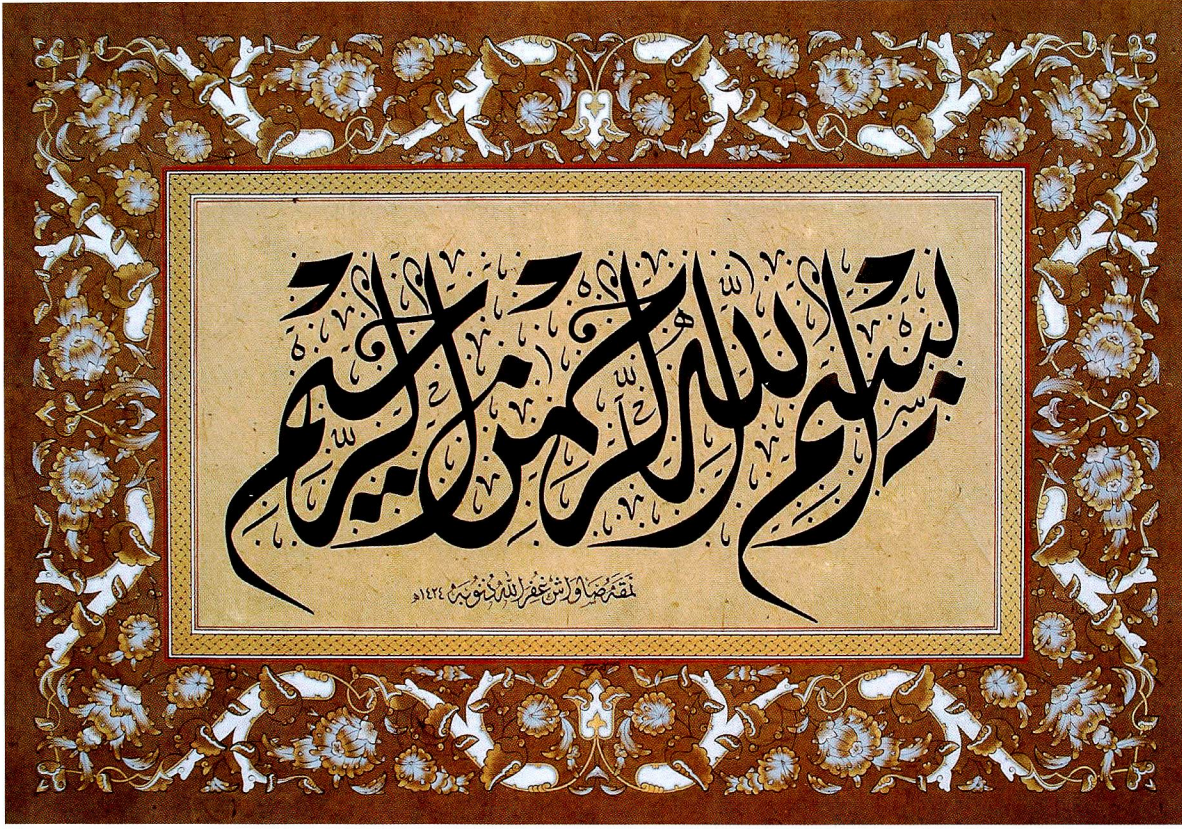 بسم الله الرحمن الرحيم
نمقه صاواش غفر الله ذنوبه ١٤٢٤هـ